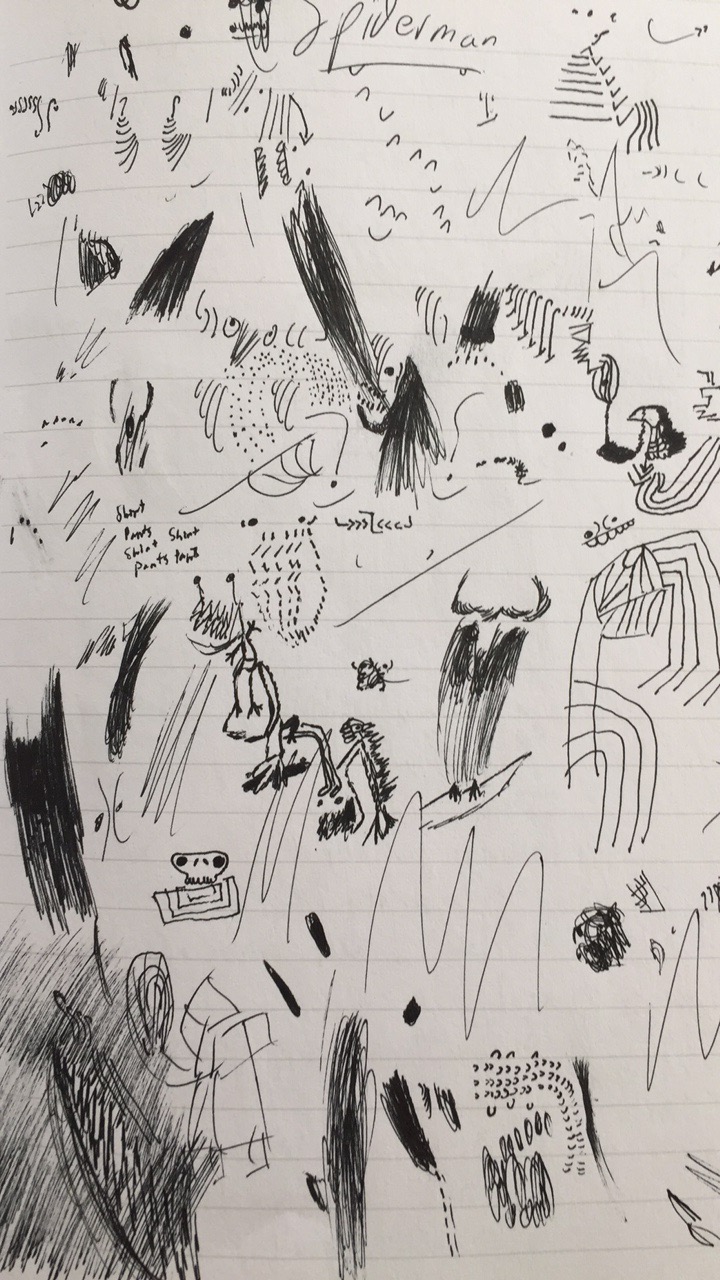 Spiderman
Shirt
Pants
Shirt Shirt
Pants Pants